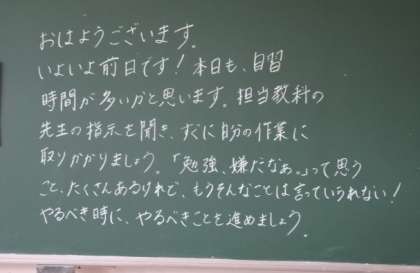 おはようございます。
いよいよ前日です！本日も、自習
時間が多いかと思います。担当教科の
先生の指示を聞き、すぐに自分の作業に
取りかかりましょう。「勉強、嫌だなぁ。」って思う
こと、たくさんあるけれど、もうそんなことは言っていられない！
やるべき時に、やるべきことを進めましょう。